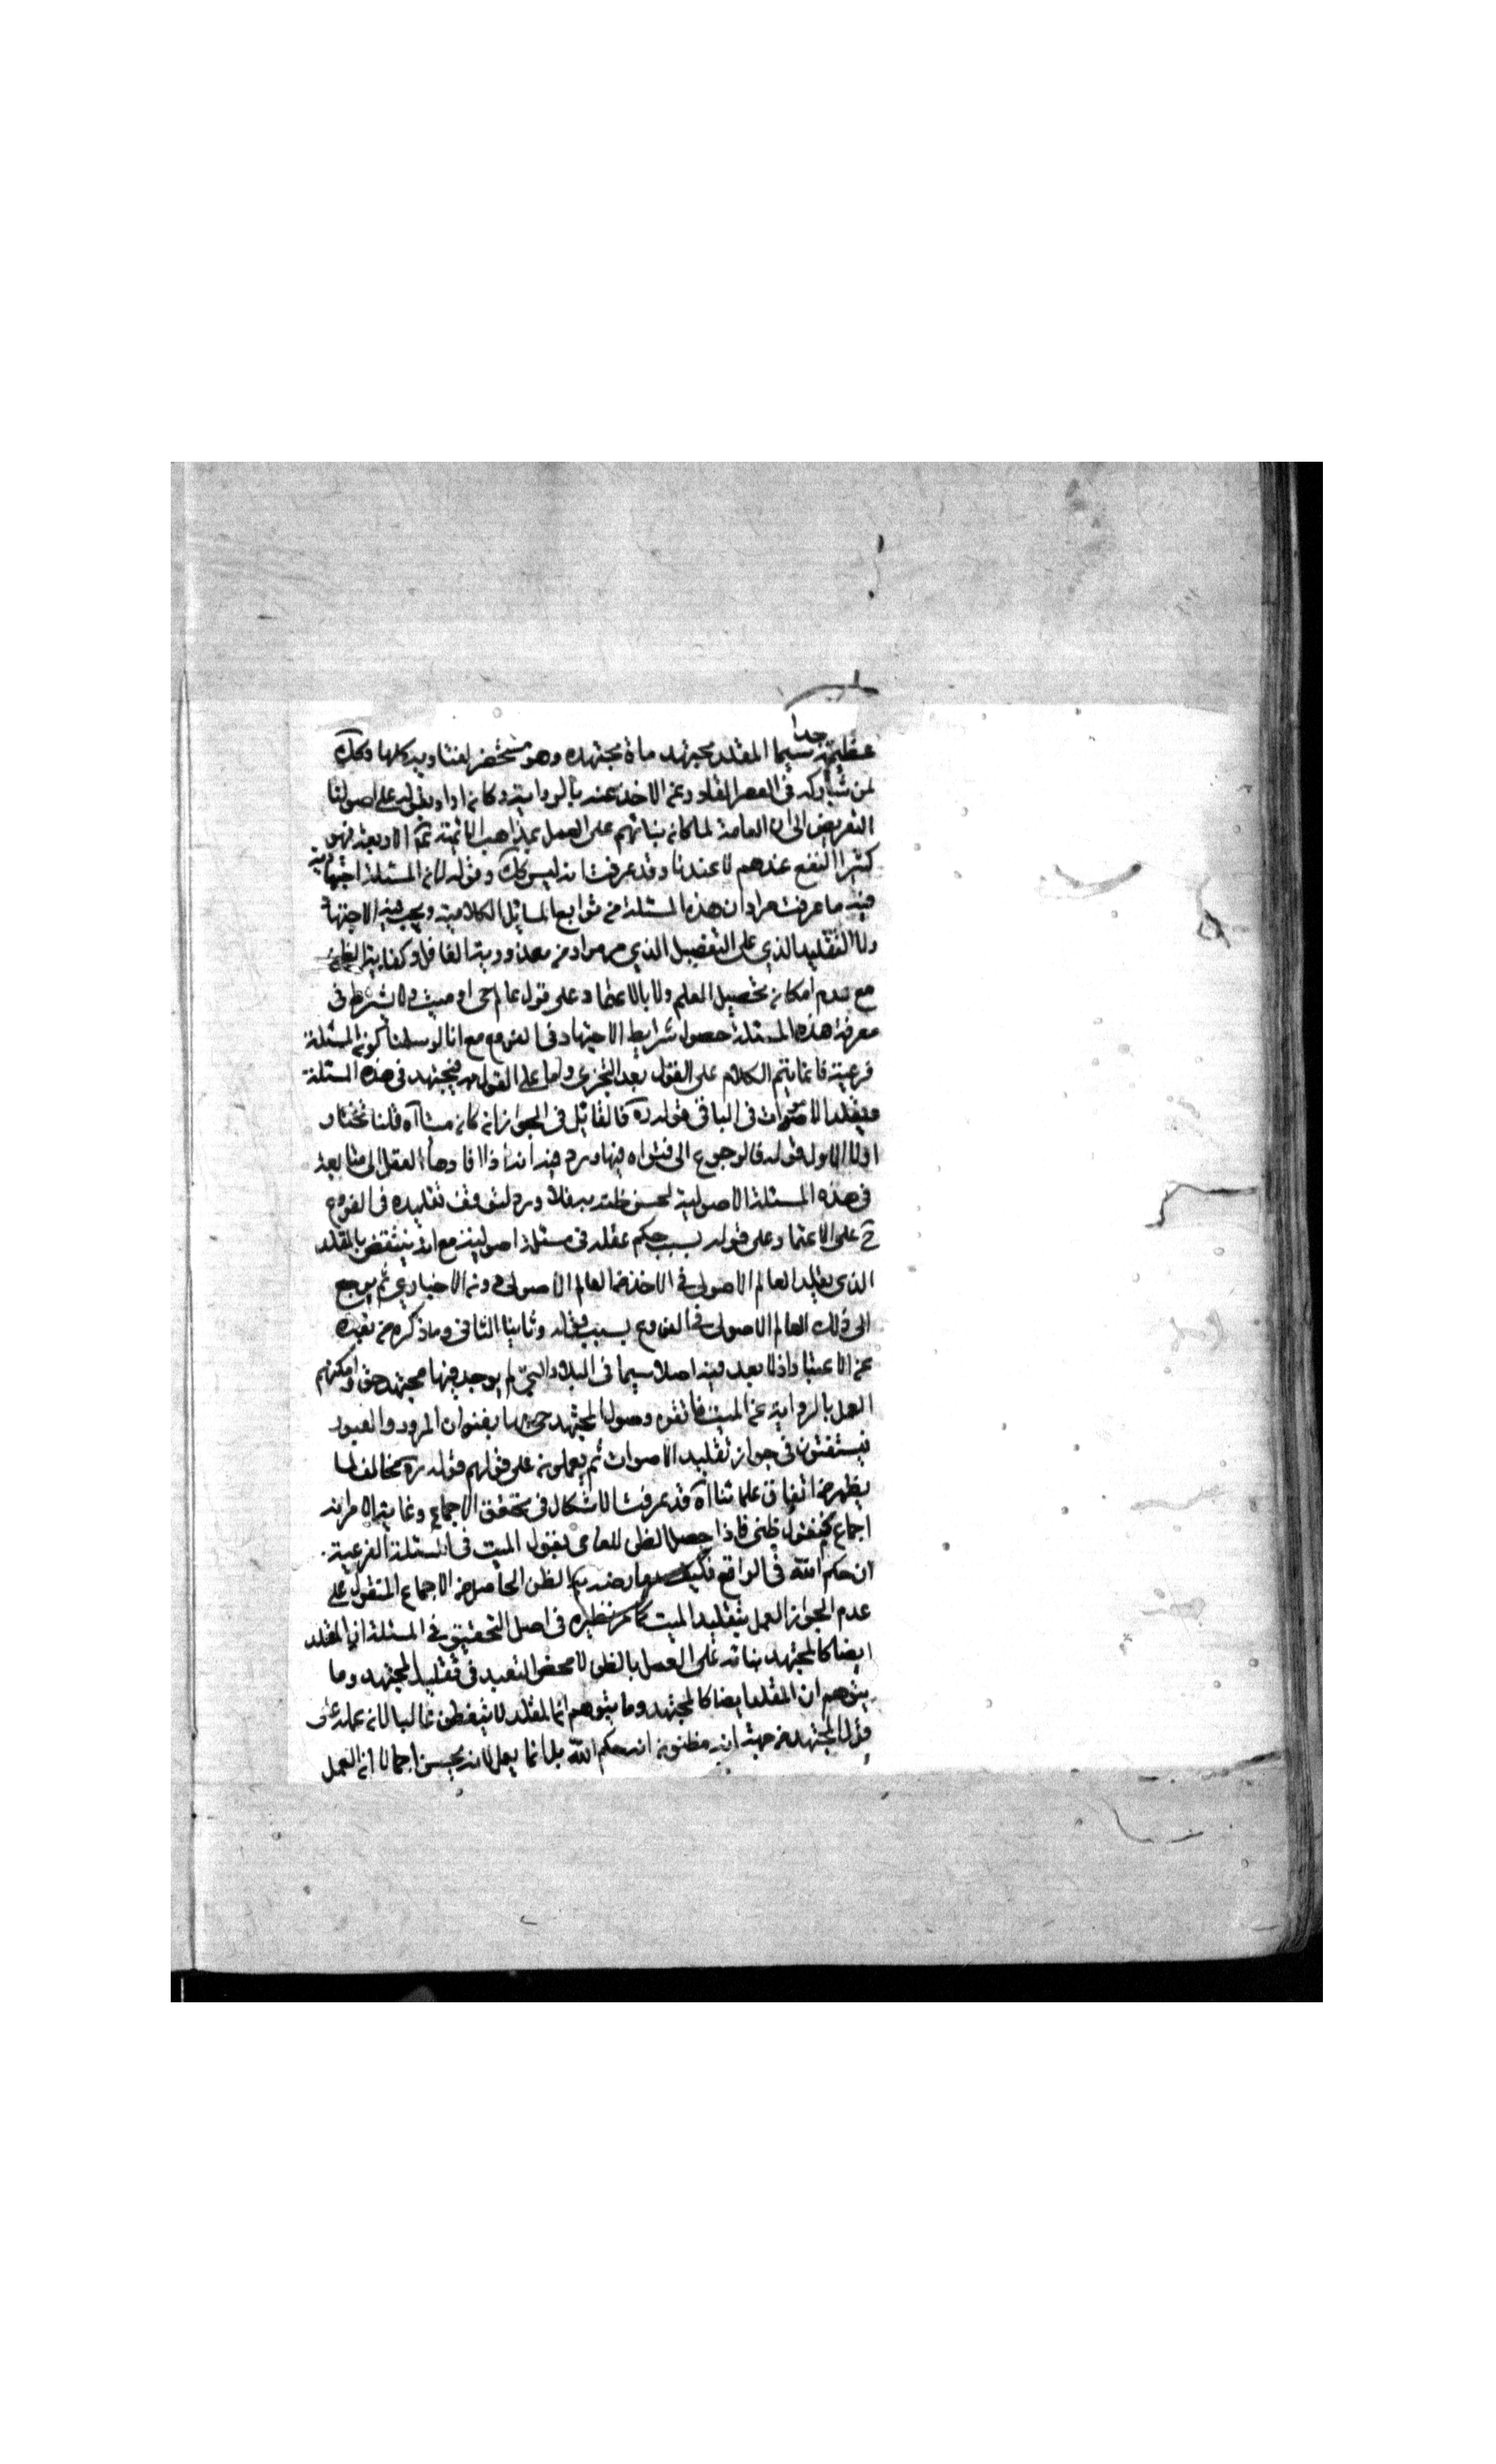 جدا
عظيمة سيما المقلد مجتهد مات مجتهده وهو مستحضر لفتاويه كلها وكك
لمن شاركه في العصر الاخذ عنه بالرواية وكانه اراد بقوله على اصولنا
التعريض الى ان العامة لما كان بنائهم على العمل بمذاهب ائمتهم الاربعة فهو
كثير النفع عندهم لا عندنا وقد عرفت انه ليس كك وقوله لان المسئلة اجتهادية
فيه ما عرفت مرارا ان هذه المسئلة من توابع المسائل الكلامية ويجب فيه الاجتهاد
ولا التقليد الذي على التفصيل الذي مر مرارا من معذورية الغافل وكفاية الظن
مع عدم امكان تحصيل العلم ولا بالاعتماد على قول عالم حي او ميت ولا يشترط في
معرفة هذه المسئلة حصول شرايط الاجتهاد في الفروع مع انا لو سلمنا كون المسئلة
فرعية فانما يتم الكلام على القول بعدم التجزي واما على القول به فيجتهد في هذه المسئلة
ويقلد الاموات في الباقي قوله ره فالقائل في الجواز ان كان ميتا آه قلنا نختار
اولا الاول قوله فالرجوع الى فتواه فيها دور فيه انه اذا قاده العقل الى متابعة
في هذه المسئلة الاصولية لحسن ظنه به فلا دور لتوقف تقليده في الفروع
ح على الاعتماد على قوله بسبب حكم عقله في مسئلة اصولية مع انه ينتقض بالمقلد
الذي يقلد العالم الاصولي في الاخذ من العالم الاصولي دون الاخباري ثم يرجع
الى ذلك العالم الاصولي في الفروع بسبب قوله وثانيا الثاني وما ذكره من بعده
عن الاعتبار اذ لا بعد فيه اصلا سيما في البلاد التي لم يوجد فيها مجتهد حي وامكنهم
العمل بالرواية عن الميت فاتفق وصول المجتهد حي بها بعنوان المرور والعبور
فيستفتون في جواز تقليد الاموات ثم يعملون على قولهم قوله ره مخالف لما
يظهر من اتفاق علمائنا آه قد عرفت الاشكال في تحقق الاجماع وغاية الامر انه
اجماع منقول ظني فاذا حصل الظن للعامي بقول الميت في المسئلة الفرعية
ان حكم الله في الواقع فكيف يعارضه الظن الحاصل من الاجماع المنقول على
عدم الجواز العمل بتقليد الميت كما مر نظيره في اصل التحقيق في المسئلة ان المقلد
ايضا كالمجتهد بنائه على العمل بالظن لا محض التعبد في تقليد المجتهد وما
يتوهم ان المقلد ايضا كالمجتهد وما يتوهم ان المقلد لا يتفطن غالبا لان عمله على
قول المجتهد من جهة انه مظنون انه حكم الله بل انما يعمل لانه يحسن اجمالا ان العمل